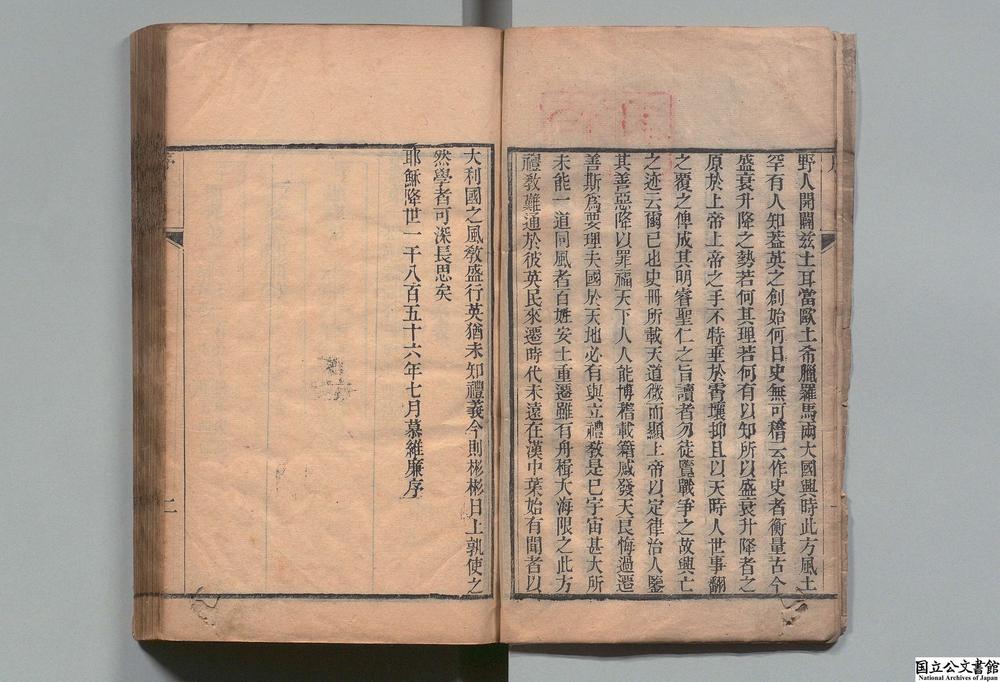 野人開闢茲土耳當歐土希臘羅馬兩大國興時此方風土
罕有人知蓋英之創始何日史無可稽云作史者衡量古今
盛衰升降之勢若何其理若何有以知所以盛衰升降者之
原於上帝上帝之手不特垂於霄壤抑且以天時人世事翻
之覆之俾成其明睿聖仁之旨讀者勿徒覽戰爭之故興亡
之迹云爾已也史冊所載天道微而顯上帝以定律治人鑒
其善惡降以罪福天下人人能博稽載籍感發天良悔過遷
善斯爲要理夫國於天地必有與立禮教是已宇宙甚大所
未能一道同風者百姓安土重遷雖有舟楫大海限之此方
禮教難通於彼英民來遷時代未遠在漢中葉始有聞者以
大利國之風教盛行英猶未知禮義今則彬彬日上孰使之
然學者可深長思矣
耶穌降世一千八百五十六年七月慕維廉序
序
二
国立公文書館
National Archives of Japan